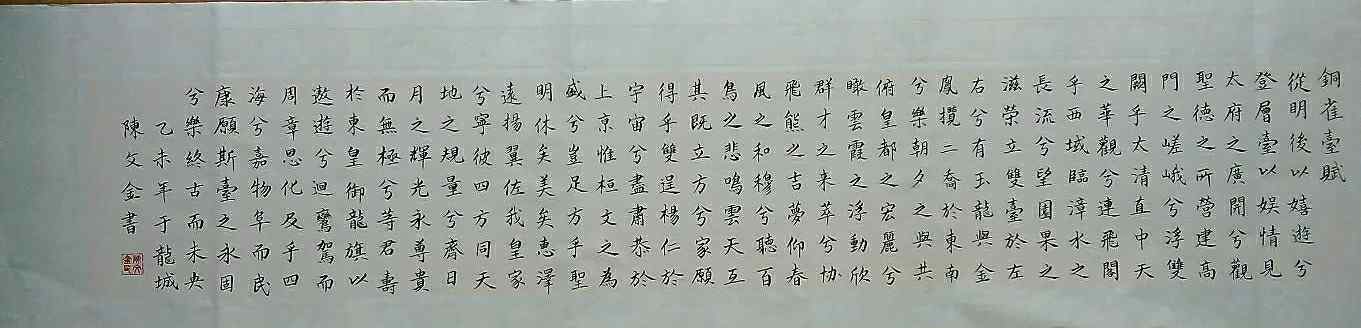 銅雀臺賦
從明後以嬉遊兮
登層臺以娛情見
太府之廣開兮觀
聖德之所營建高
門之嵯峨兮浮雙
闕乎太清直中天
之華觀兮連飛閣
乎西域臨漳水之
長流兮望園果之
滋榮立雙臺於左
右兮有玉龍與金
鳳攬二喬於東南
兮樂朝夕之與共
俯皇都之宏麗兮
瞰雲霞之浮動欣
群才之来萃兮協
飛熊之吉夢仰春
風之和穆兮聽百
鳥之悲鳴雲天互
其既立方兮家願
得乎雙逞楊仁於
宇宙兮盡肅恭於
上京惟桓文之為
盛兮豈足方乎聖
明休矣美矣惠澤
遠揚翼佐我皇家
兮寧彼四方同天
地之規量兮齊日
月之輝光永尊貴
而無極兮等君壽
於東皇御龍旗以
遨遊兮迴鸞駕而
周章思化及乎四
海兮嘉物阜而民
康願斯臺之永固
兮樂終古而未央
乙未年于龍城
陳文金書